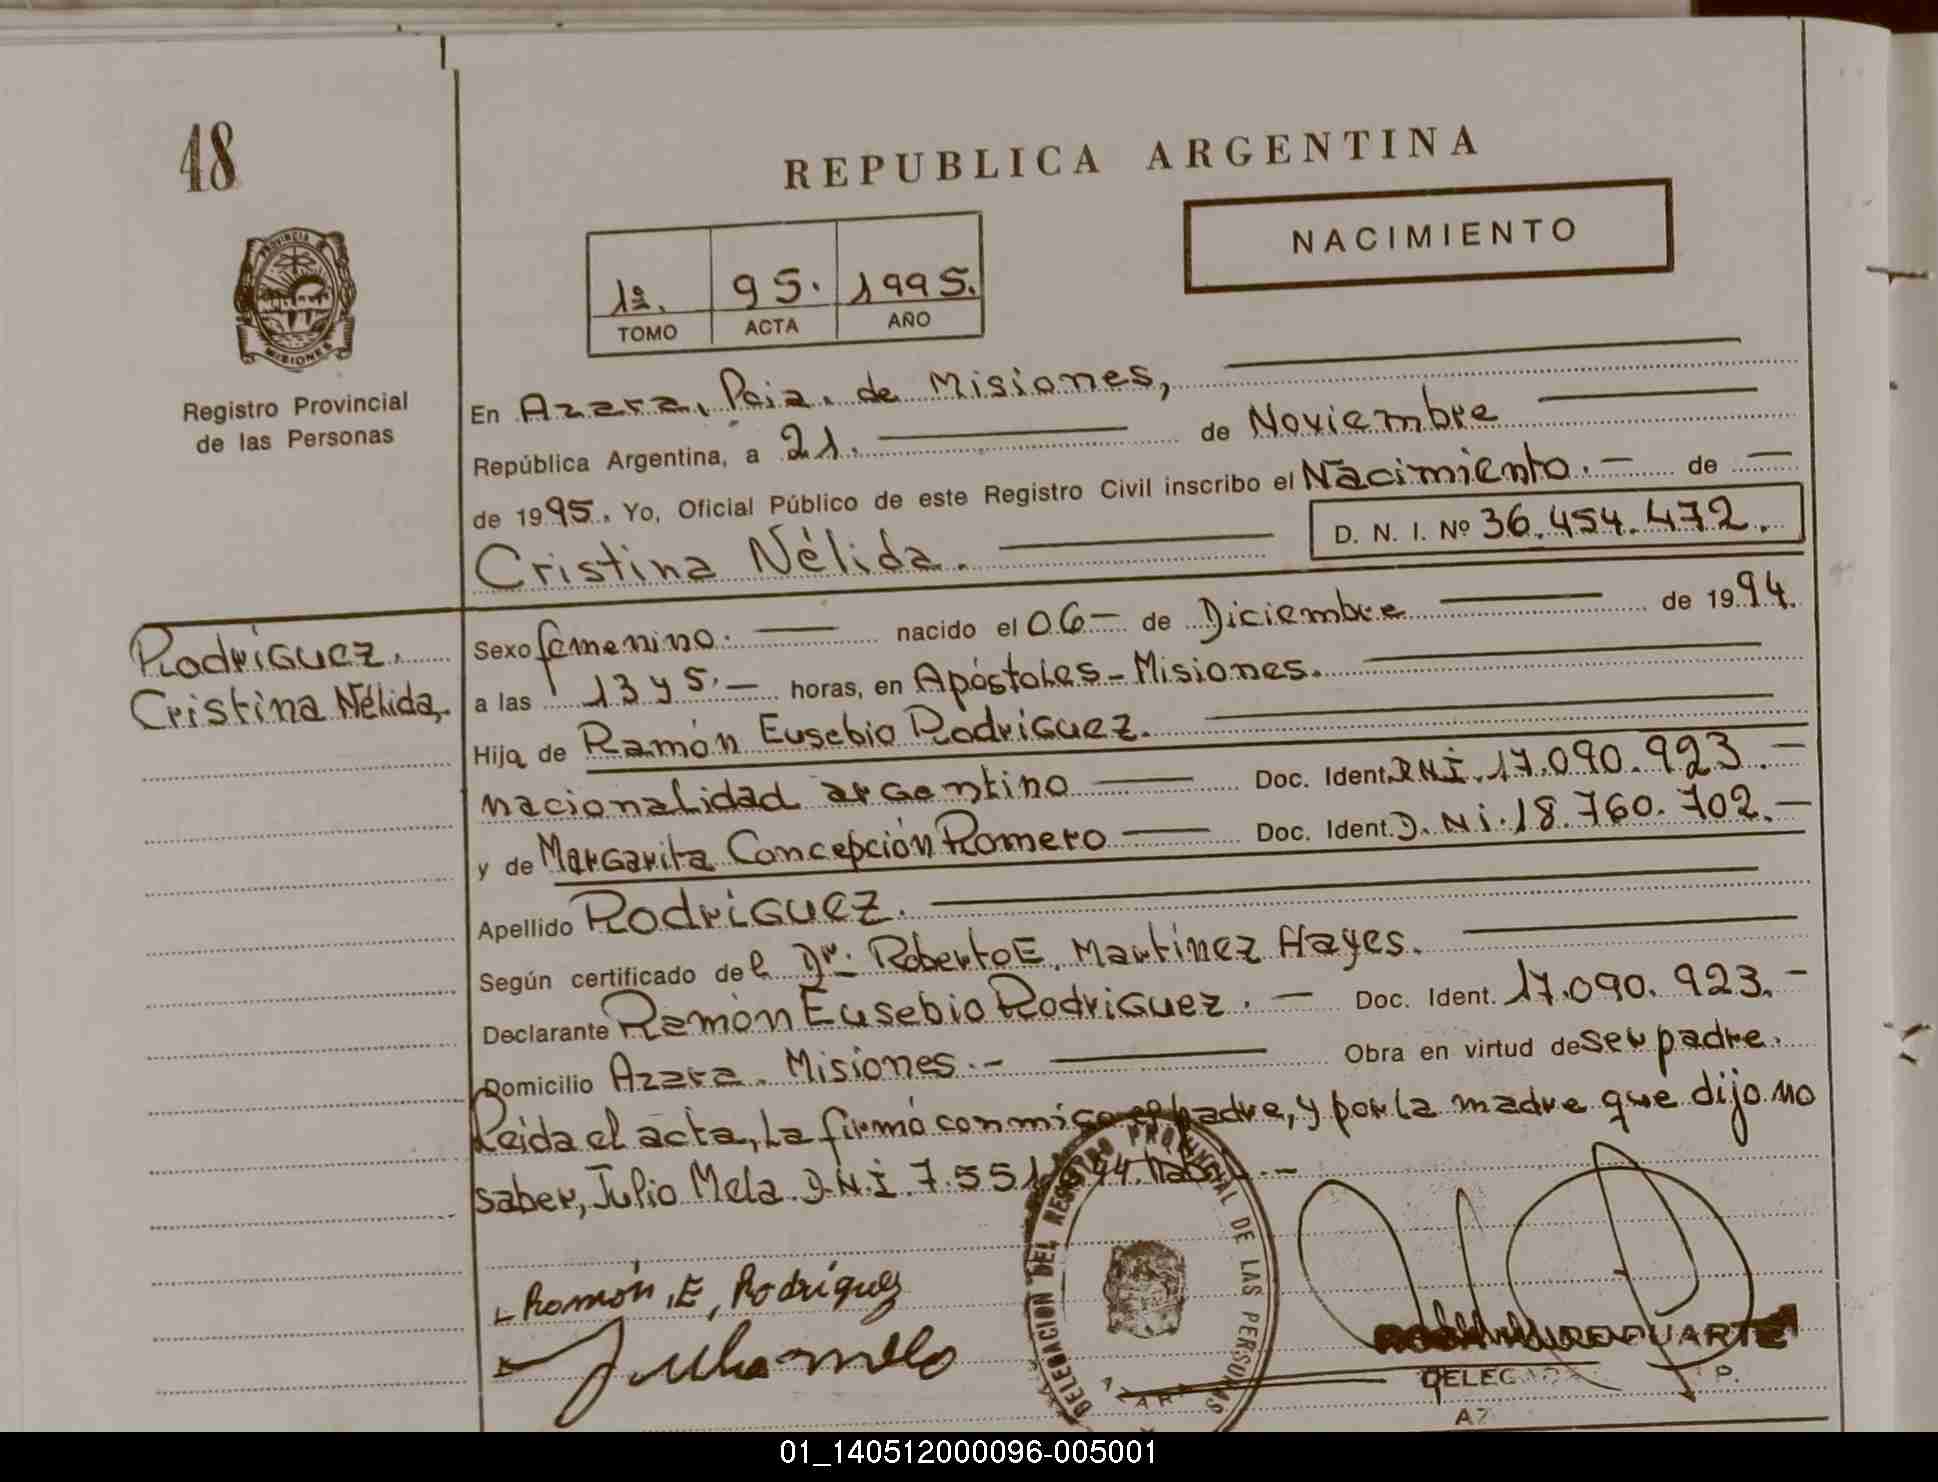 48
REPUBLICA ARGENTINA
NACIMIENTO
1º. 95. 1995.
TOMO ACTA AÑO
PROVINCIA
MISIONES
Registro Provincial
de las Personas
En Azara, Pcia. de Misiones,
República Argentina, a 21. de Noviembre
de 1995. Yo, Oficial Público de este Registro Civil inscribo el Nacimiento.- de
Cristina Nélida. D. N. I. Nº 36.454.472.
Rodríguez.
Cristina Nélida,.
Sexo femenino. nacido el 06- de Diciembre de 1994.
a las 13 y 5.- horas, en Apóstoles-Misiones.
Hija de Ramón Eusebio Rodríguez.
nacionalidad argentino Doc. Ident. DNI. 17.090.923.-
y de Margarita Concepción Romero Doc. Ident. D.Ni.18.760.702.-
Apellido Rodríguez.
Según certificado del Dr. Roberto E. Martínez Hayes.
Declarante Ramón Eusebio Rodríguez.- Doc. Ident. 17.090.923.-
Domicilio Azara. Misiones.- Obra en virtud de ser padre.
Leída el acta, la firmó conmigo el padre, y por la madre que dijo no
saber, Julio Mela D.N.I. 7.551
Ramón, E, Rodríguez
Julio melo
DELEGACION DEL REGISTRO PROVINCIAL DE LAS PERSONAS
AZARA
DUARTE
01_140512000096-005001